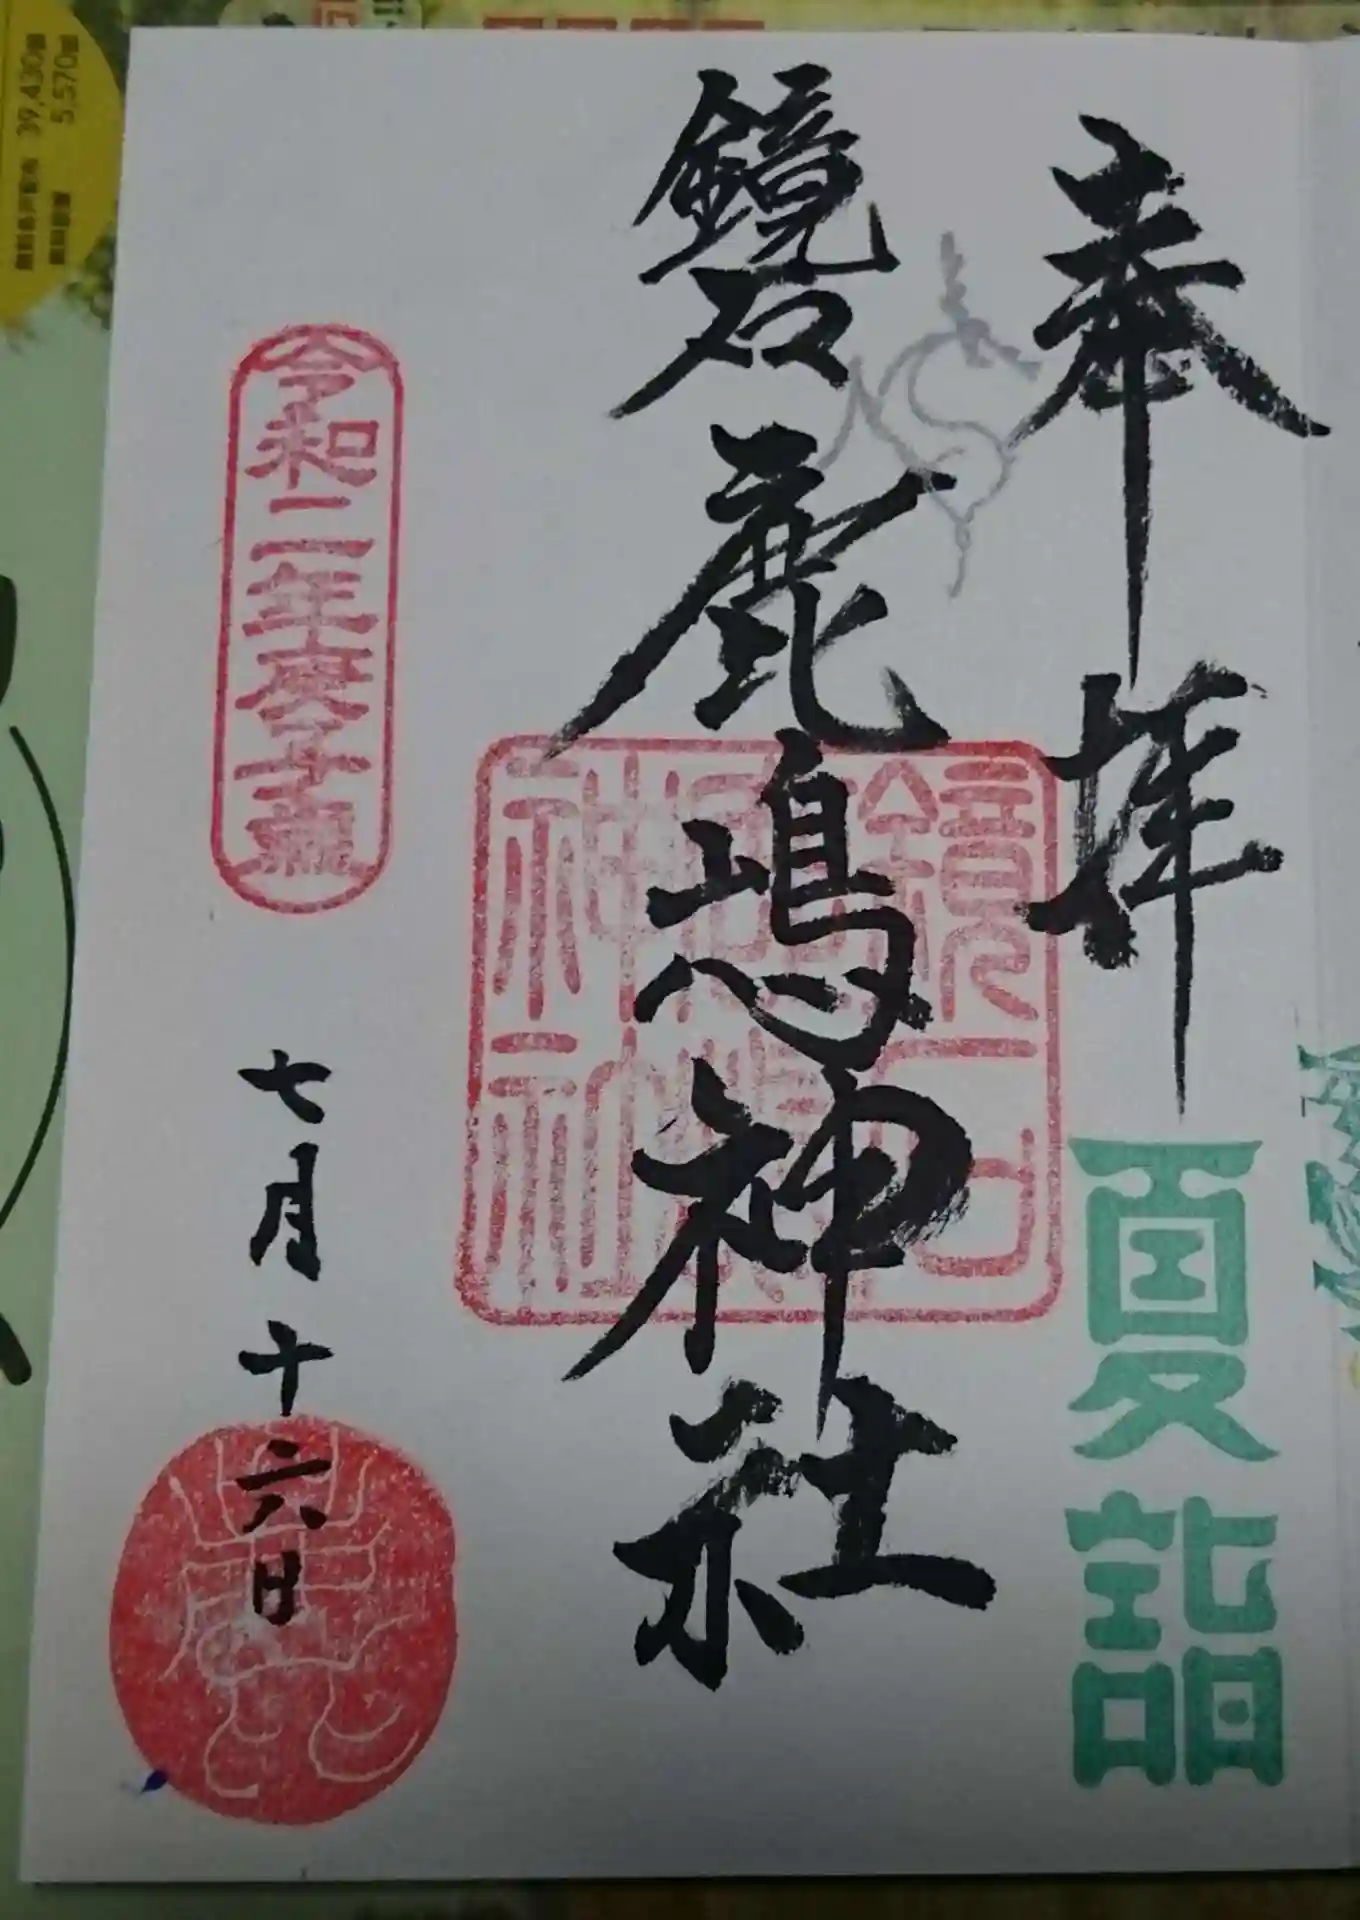 奉拝
夏詣
鏡石鹿嶋神社
鏡石
神社
令和二年庚子歳
七月十六日
39,430部
5,570部